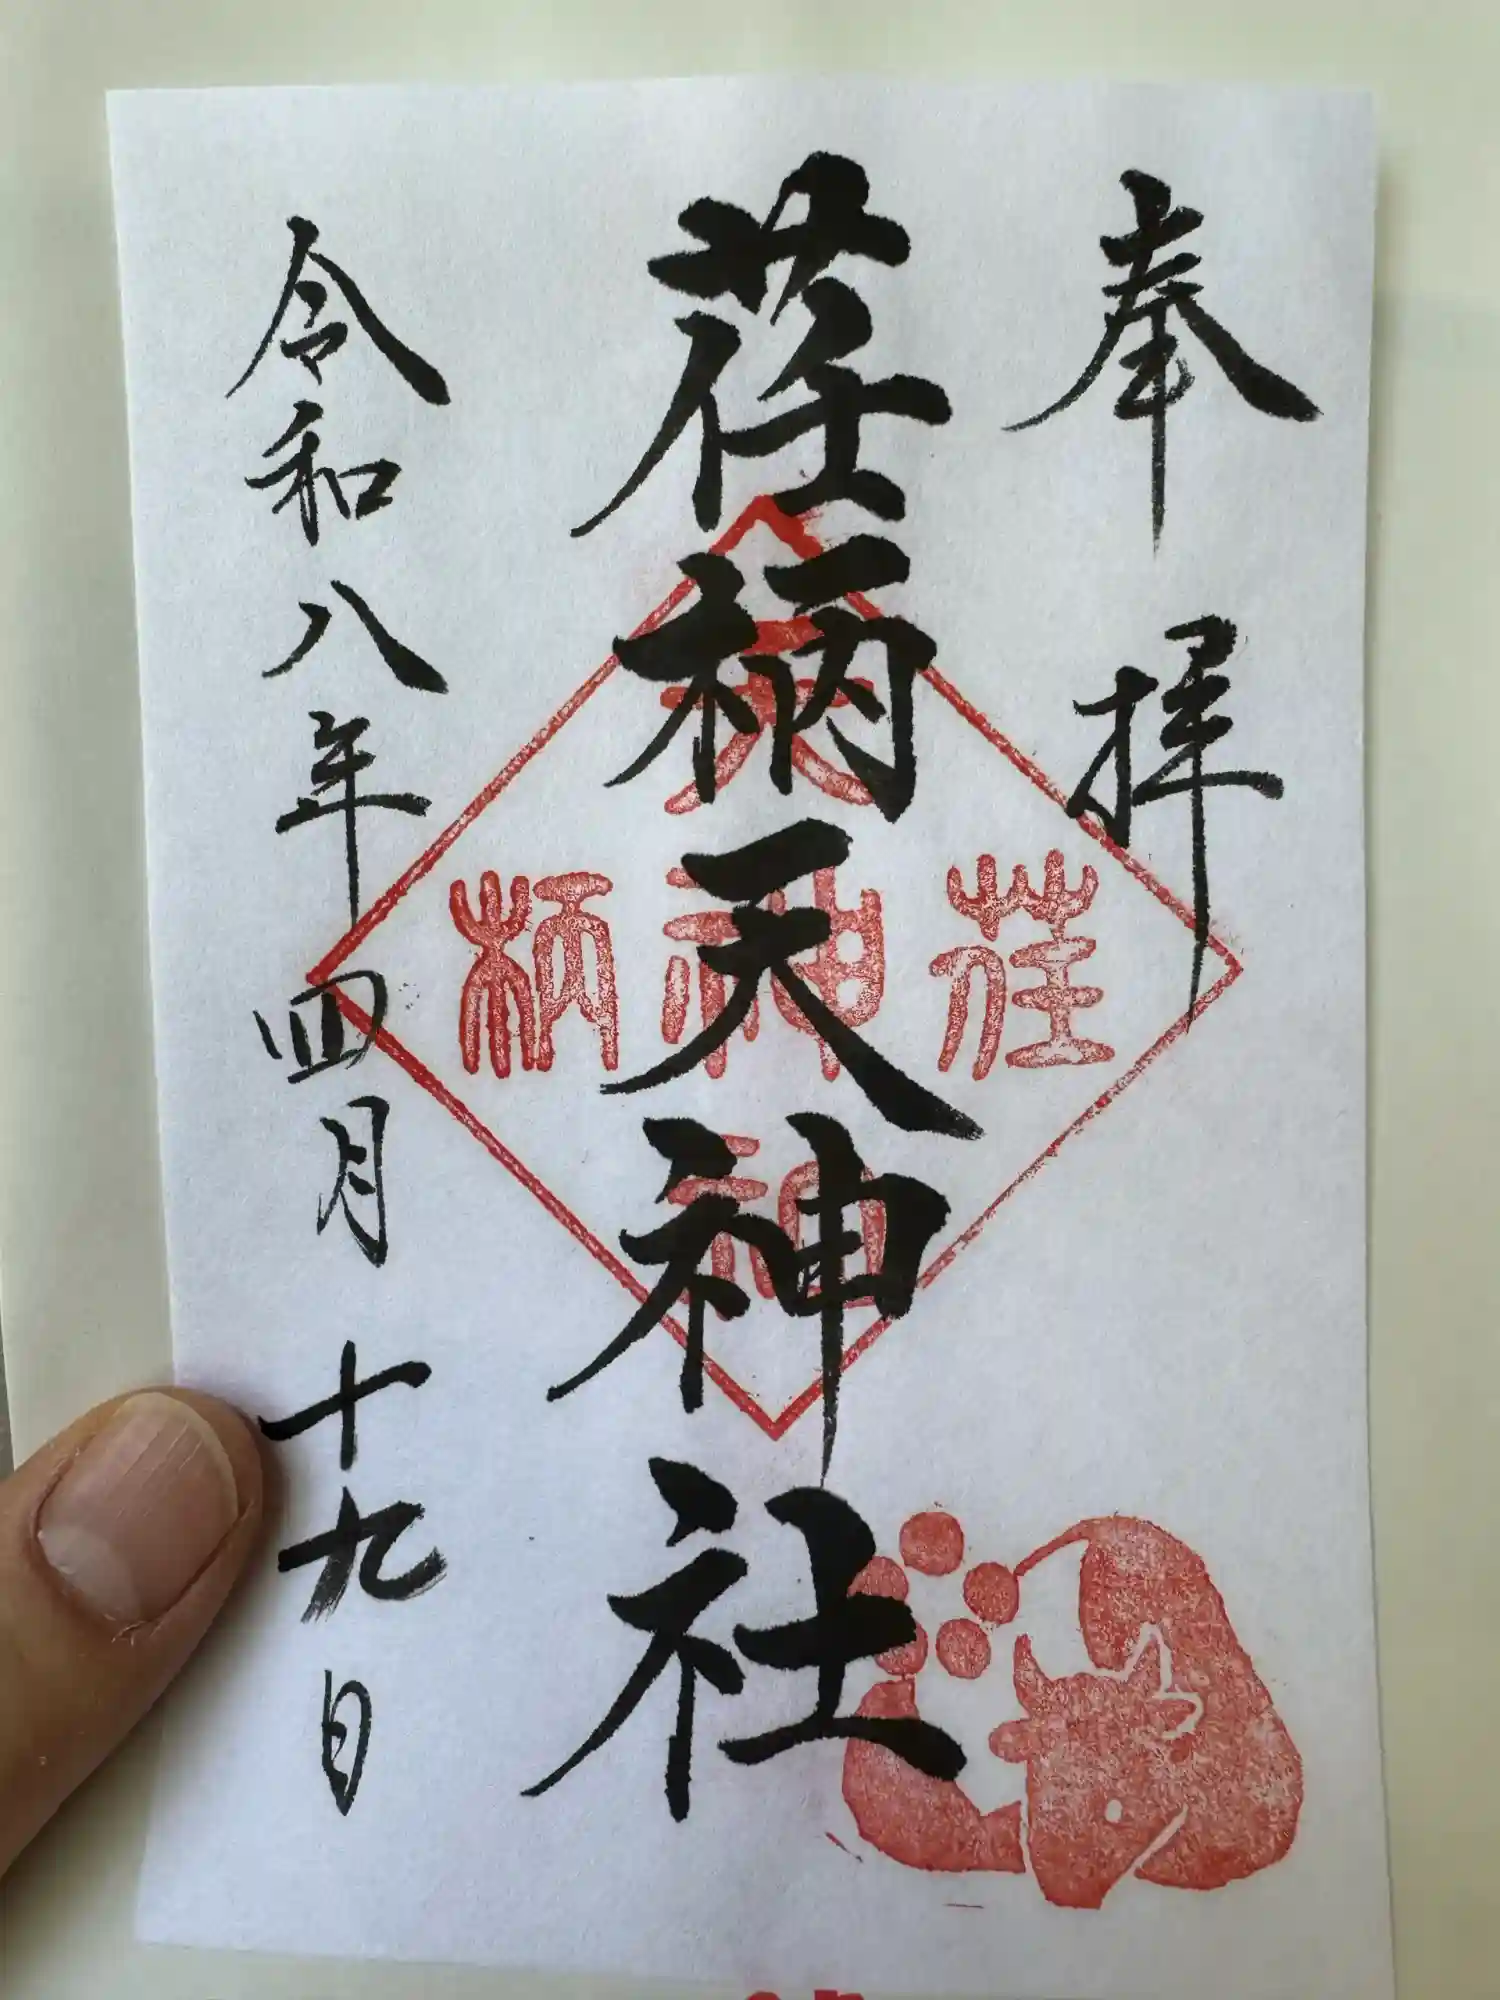 奉拝
荏柄天神社
令和八年四月十九日
荏
柄